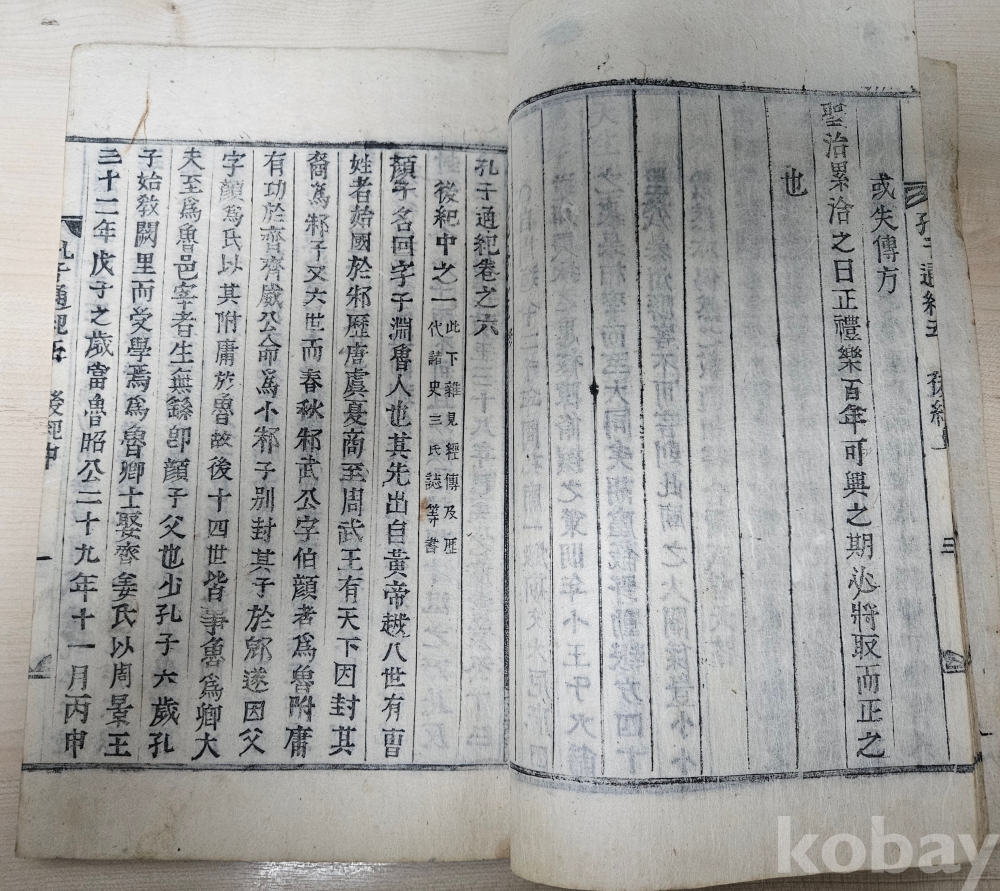 或失傳方
聖治累洽之日正禮樂百年可興之期必將取而正之
也
孔子通紀卷之六
後紀中之一 此下雜見經傳及歷
代諸史三氏誌等書
顏子名回字子淵魯人也其先出自黃帝越八世有曹
姓者始國於邾歷唐虞夏商至周武王有天下因封其
裔爲邾子又六世而春秋邾武公字伯顏者爲魯附庸
有功於齊齊威公命爲小邾子別封其子於郳遂因父
字顏爲氏以其附庸於魯故後十四世皆事魯爲卿大
夫至爲魯邑宰者生無繇卽顏子父也少孔子六歲孔
子始敎闕里而受學焉爲魯卿士娶齊姜氏以周景王
三十二年戊子之歲當魯昭公二十九年十一月丙申
孔子通紀五
後紀中
一
三
kobay